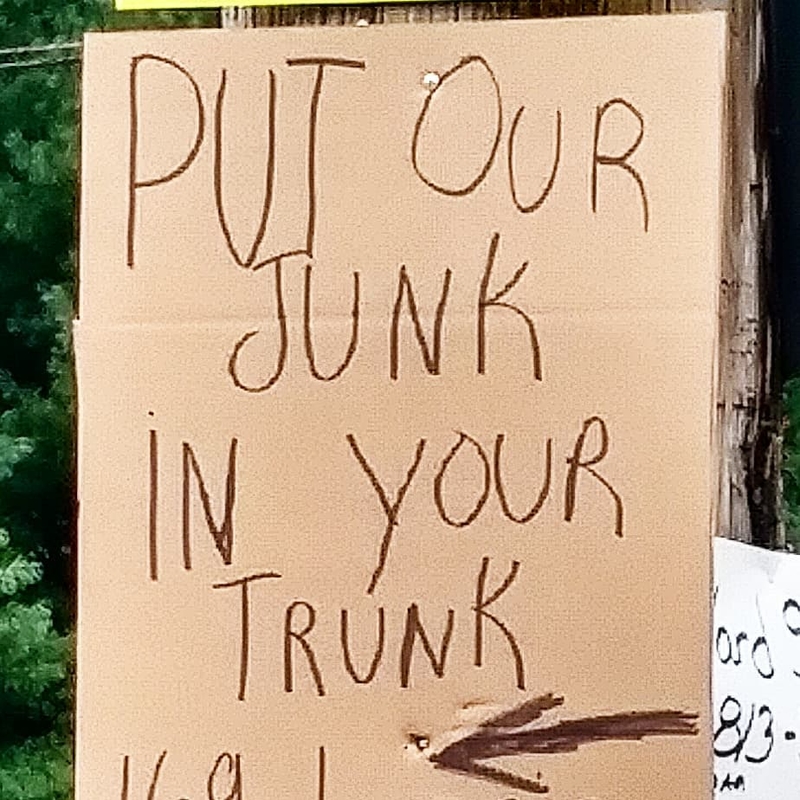 PUT OUR
JUNK
IN YOUR
TRUNK
8/3 -